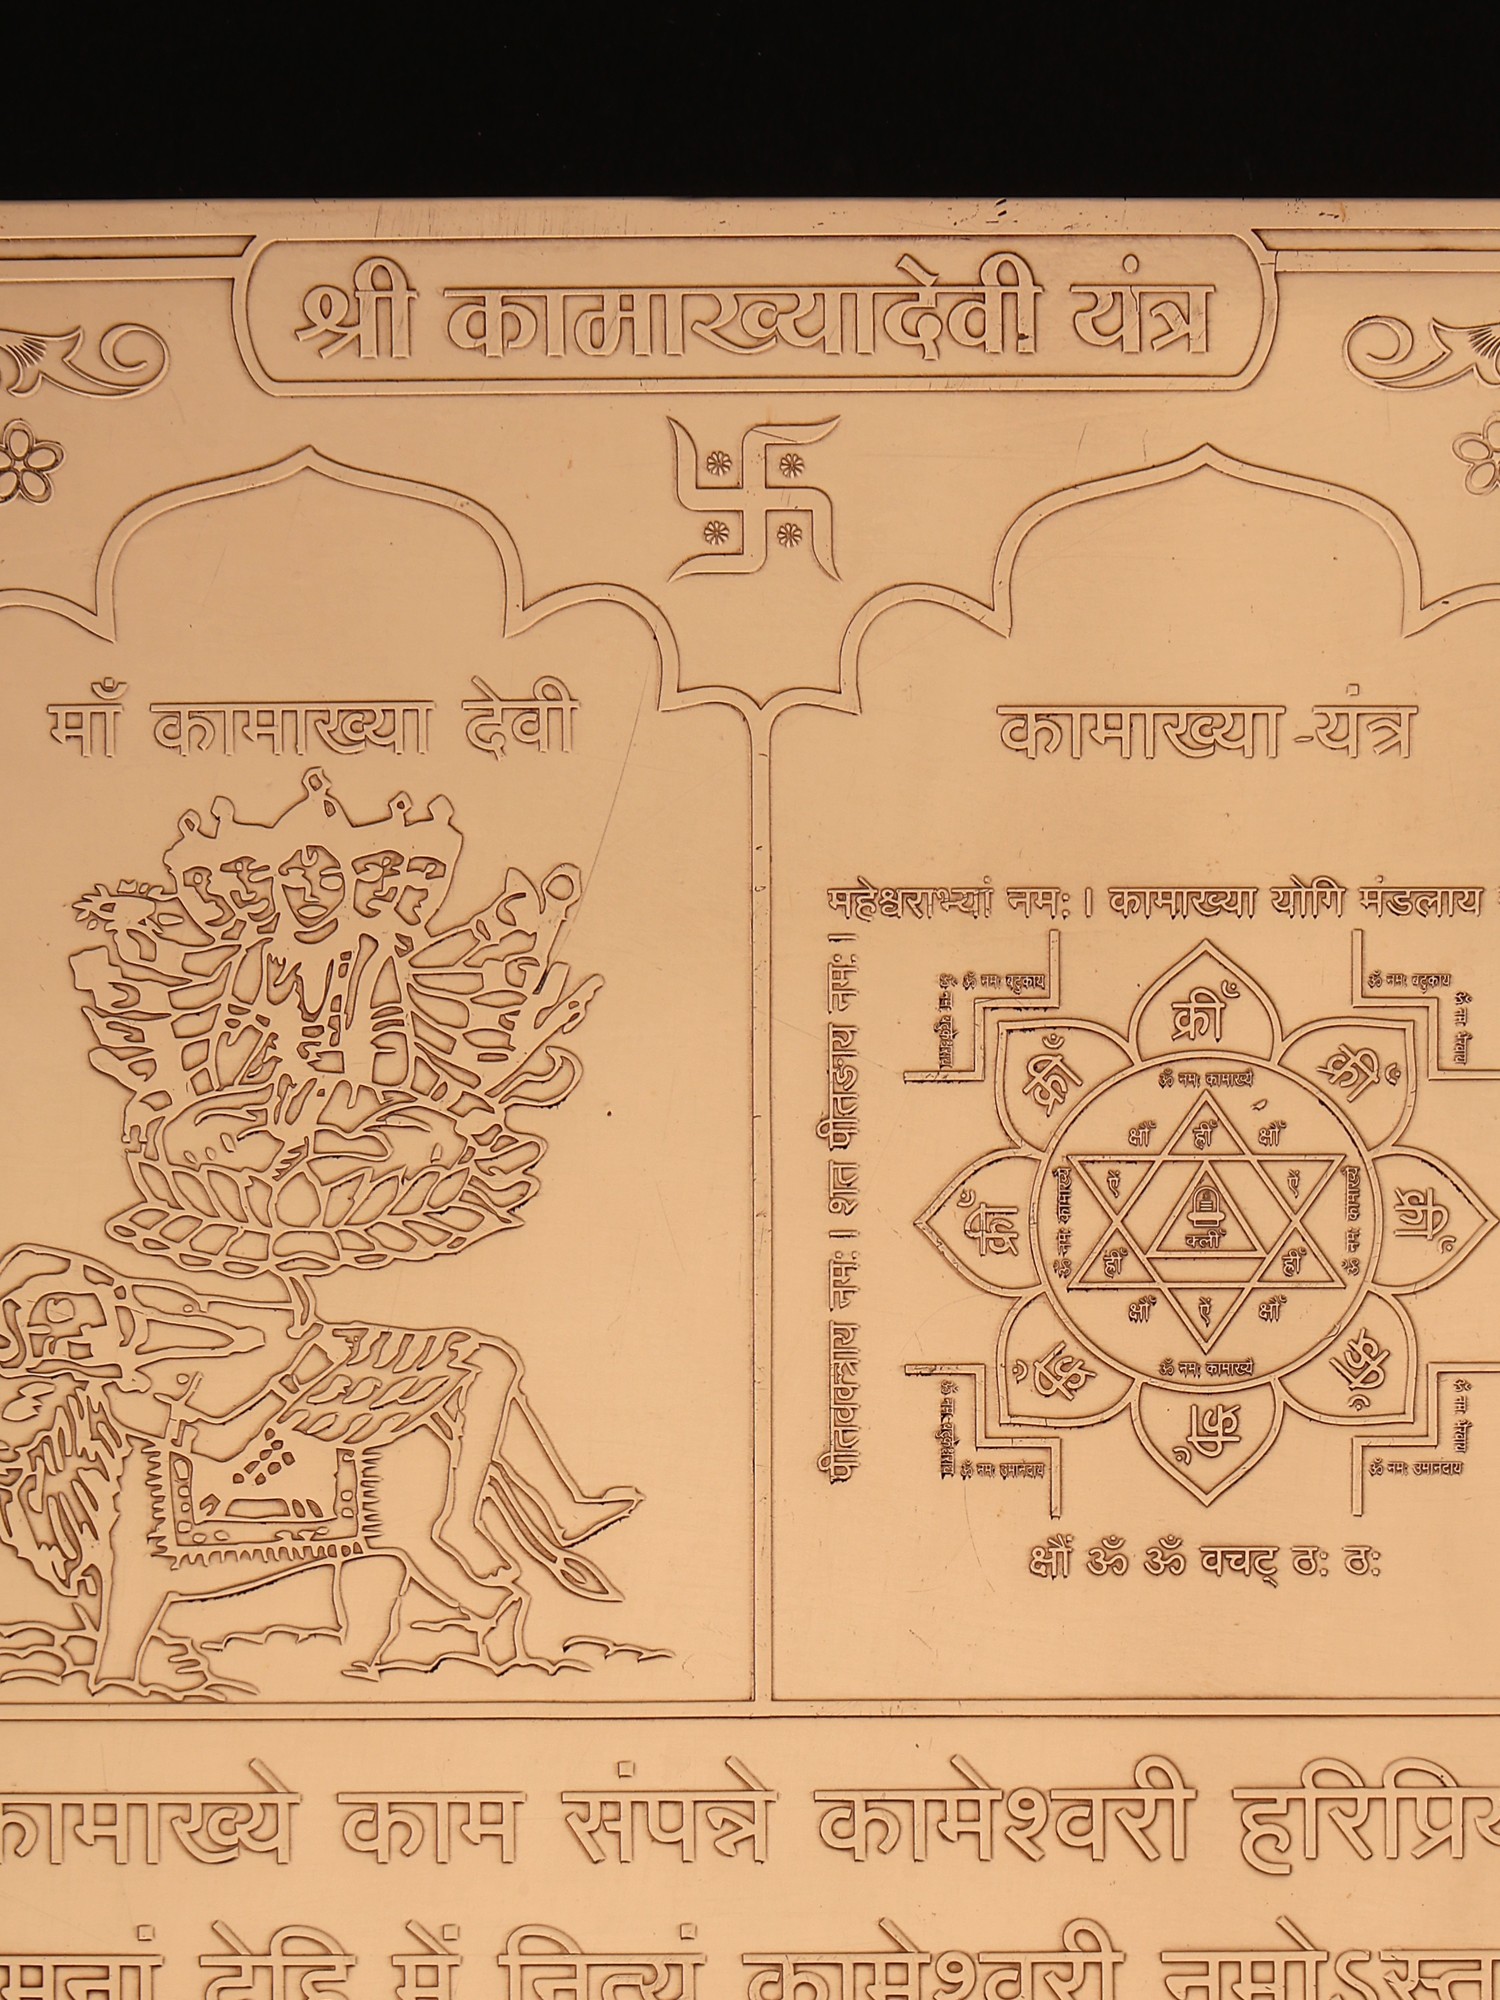 श्री कामाख्यादेवी यंत्र
माँ कामाख्या देवी
कामाख्या -यंत्र
महेश्वराभ्यां नमः । कामाख्या योगि मंडलाय
पीतवक्त्राय नमः । शत पीतडाय नमः ।
ॐ ॐ नमः बटुकाय
ॐ नमः बटुकाय
ॐ नमः भैरवाय
क्रीं
क्रीं
क्रीं
ॐ नमः कामाख्ये
क्षौं ह्रीं क्षौं
ऐं ऐं
ॐ नमः कामाख्ये
ॐ नमः कामाख्ये
क्रीं
क्रीं
क्लीं
ह्रीं ह्रीं
क्षौं ऐं क्षौं
ॐ नमः कामाख्ये
क्रीं
क्रीं
क्रीं
ॐ नमः भैरवाय
ॐ नमः उमानंदाय
ॐ नमः उमानंदाय
क्षौं ॐ ॐ वचट् ठः ठः
कामाख्ये काम संपन्ने कामेश्वरी हरिप्रिय
मनां देहि में नित्यं कामेश्वरी नमोऽस्त